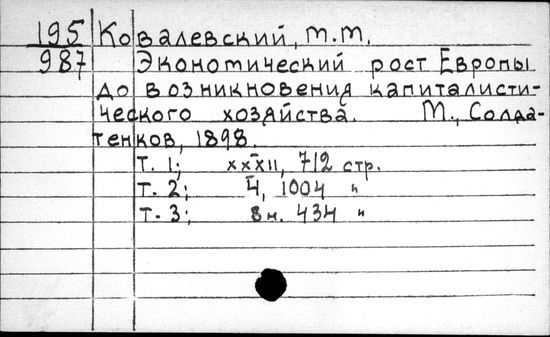 195 Ковалевский, М.М.
987 Экономический рост Европы
до возникновения капиталисти-
ческого хозяйства. М., Солда-
тенков, 1898.
Т. 1; XXXII, 712 стр.
Т. 2; 4, 1004 "
Т. 3; 8 н. 434 "